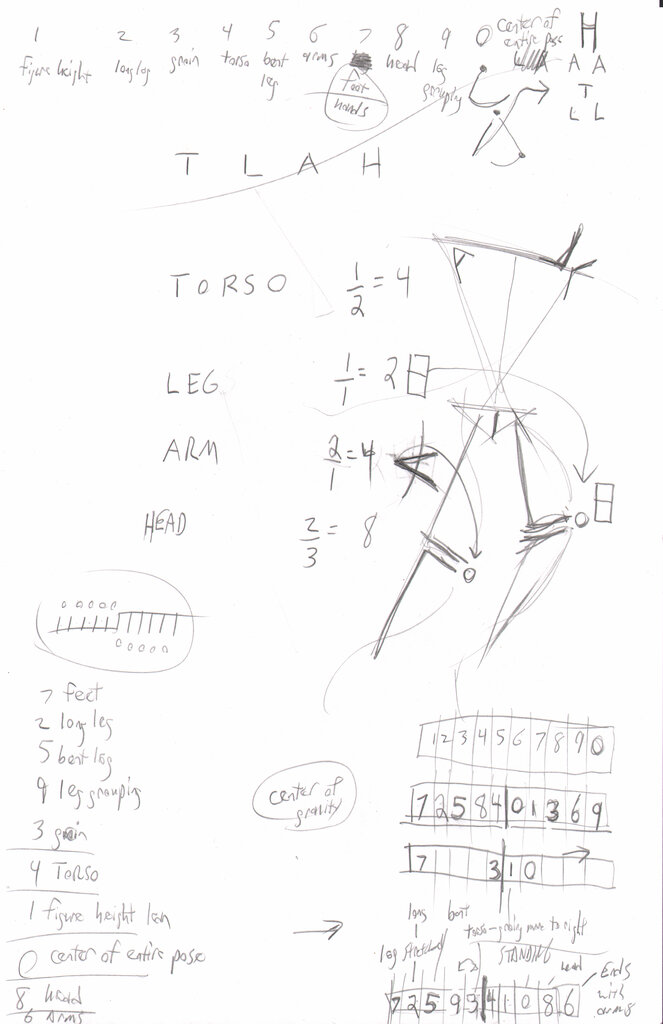 1 2 3 4 5 6 7 8 9 0 center of entire pose
figure height long leg groin torso bent leg arms feet hands head leg grouping
H
A A
T
L L
T L A H
TORSO 1/2 = 4
LEG 1/1 = 2
ARM 2/1 = 4
HEAD 2/3 = 8
7 feet
2 long leg
5 bent leg
9 leg grouping
3 groin
4 TORSO
1 figure height lean
0 center of entire pose
8 head
6 ARMS
center of gravity
1 2 3 4 5 6 7 8 9 0
7 2 5 8 4 0 1 3 6 9
7 3 1 0
long bent
leg stretched torso-groin move to right
STANDING
head
Ends with arms
7 2 5 9 3 4 1 0 8 6